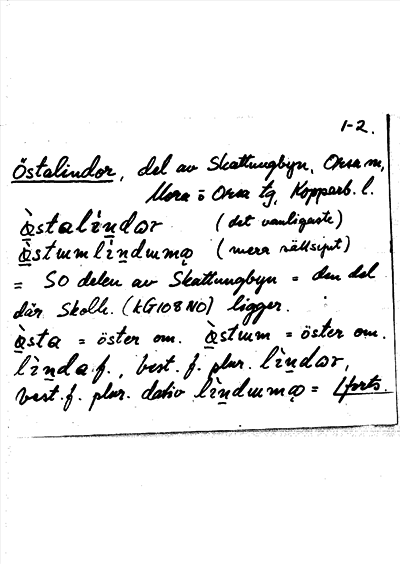 1-2.
Östalindor, del av Skattungbyn, Orsa sn,
Mora o Orsa tg, Kopparb. l.
ὰ̲stalìn̲dər (det vanligaste)
ὰ̲stummlìn̲dummą (mera sällsynt)
= SO delen av Skattungbyn = den del
där Skolh. (KG108NO) ligger.
ὰ̲sta = öster om. ὰ̲stumm = öster om.
lìn̲da f., best. f. plur. lìn̲dər,
best. f. plur. dativ lìn̲dummą = forts.